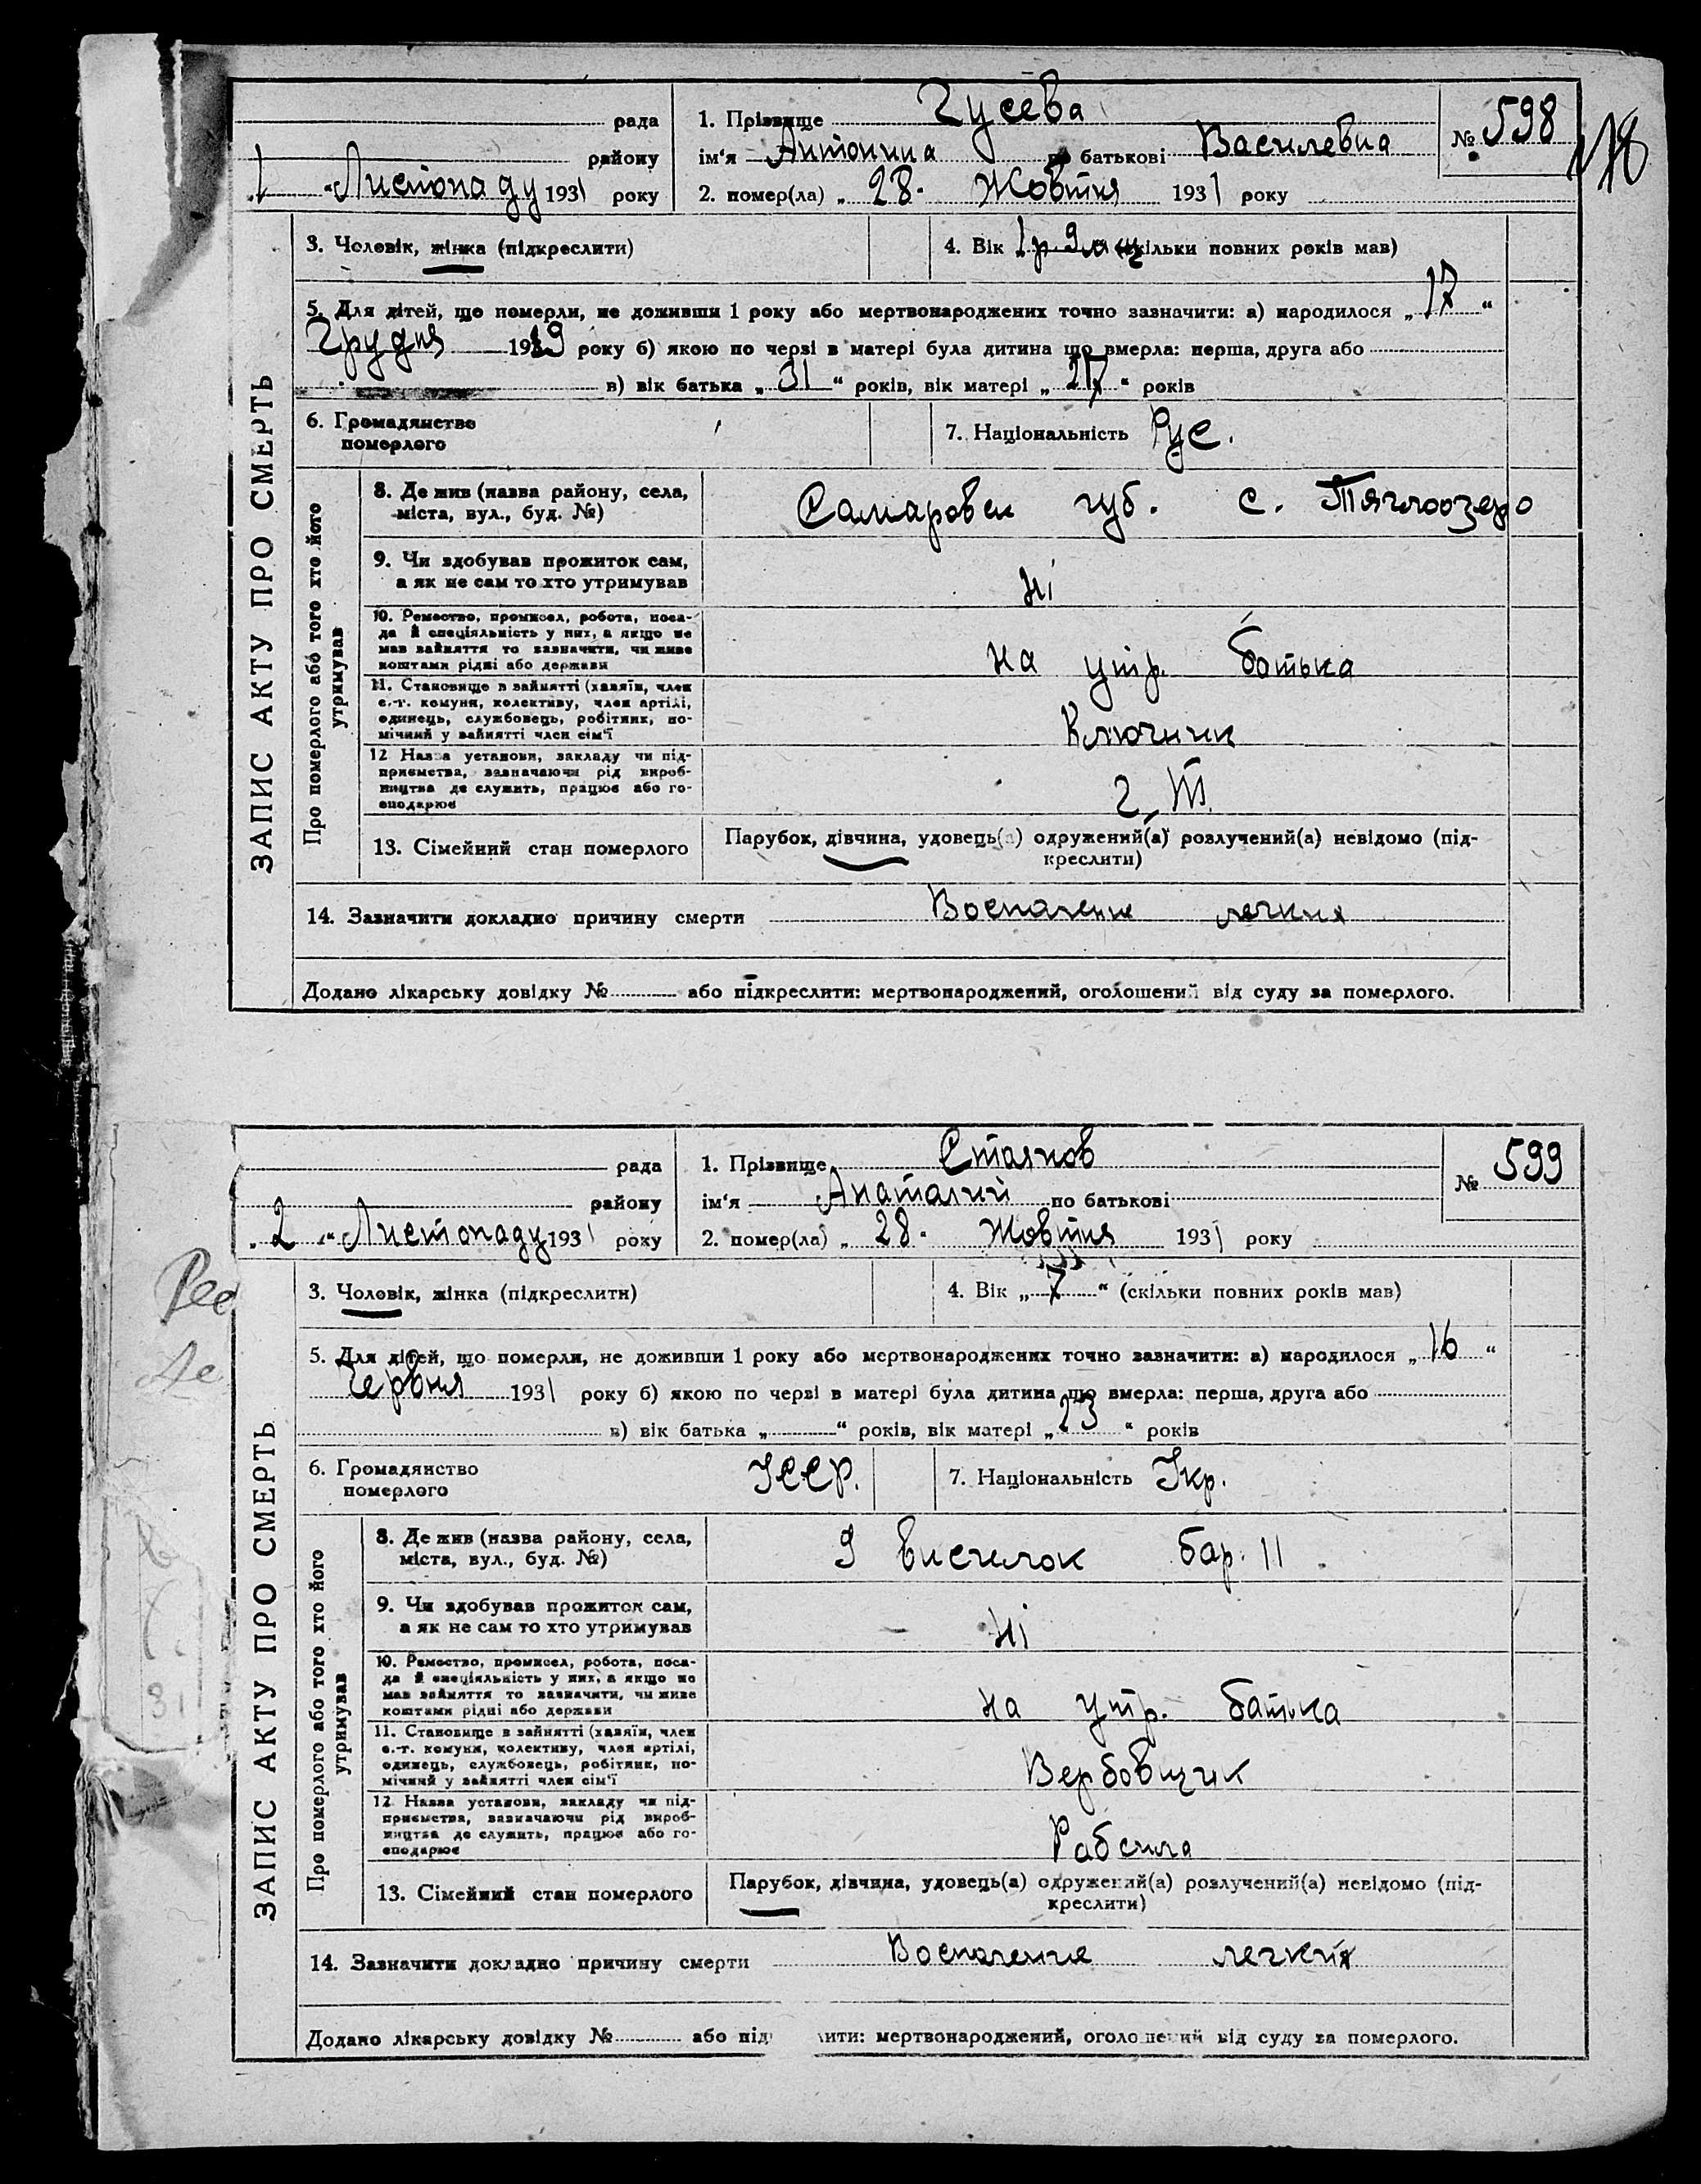 118
ЗАПИС АКТУ ПРО СМЕРТЬ
рада 1. Прізвище Гусева № 598
району ім'я Антонина по батькові Василевна
1 “ Листопаду 1931 року 2. помер(ла) „ 28. Жовтня 1931 року
3. Чоловік, жінка (підкреслити) 4. Вік 1 р 9 (скільки повних років мав)
5. Для дітей, що померли, не доживши 1 року або мертвонароджених точно зазначити: а) народилося „ 17 “
Грудня 1929 року б) якою по черзі в матері була дитина що вмерла: перша, друга або
в) вік батька „ 31 “ років, вік матері „ 27 “ років
6. Громадянство
померлого
7. Національність Рус.
Про померлого або того хто його
утримував
8. Де жив (назва району, села,
міста, вул., буд. №)
Самаровск губ. с. Тяглоозеро
9. Чи здобував прожиток сам,
а як не сам то хто утримував
Ні
10. Ремество, промисел, робота, поса-
да й спеціяльність у них, а якщо не
мав зайняття то зазначити, чи живе
коштами рідні або держави
на утр. батька
11. Становище в зайнятті (хазяїн, член
с.-г. комуни, колективу, член артілі,
одинець, службовець, робітник, по-
мічний у зайнятті член сім'ї
Ключник
12 Назва установи, закладу чи під-
приємства, зазначаючи рід вироб-
ництва де служить, працює або го-
сподарює
13. Сімейний стан померлого
Парубок, дівчина, удовець(а) одружений(а) розлучений(а) невідомо (під-
креслити)
14. Зазначити докладно причину смерти Воспаление легких
Додано лікарську довідку № або підкреслити: мертвонароджений, оголошений від суду за померлого.
ЗАПИС АКТУ ПРО СМЕРТЬ
рада 1. Прізвище Стаянов № 599
району ім'я Анаталий по батькові
„ 2 “ Листопаду 1931 року 2. помер(ла) „ 28. Жовтня 1931 року
3. Чоловік, жінка (підкреслити) 4. Вік „ “ (скільки повних років мав)
5. Для дітей, що померли, не доживши 1 року або мертвонароджених точно зазначити: а) народилося „ 16 “
Червня 1931 року б) якою по черзі в матері була дитина що вмерла: перша, друга або
в) вік батька „ “ років, вік матері „ 23 “ років
6. Громадянство
померлого
УССР.
7. Національність Укр.
Про померлого або того хто його
утримував
8. Де жив (назва району, села,
міста, вул., буд. №)
9 виселок бар. 11
9. Чи здобував прожиток сам,
а як не сам то хто утримував
Ні
10. Ремество, промисел, робота, поса-
да й спеціяльність у них, а якщо не
мав зайняття то зазначити, чи живе
коштами рідні або держави
на утр. батька
11. Становище в зайнятті (хазяїн, член
с.-г. комуни, колективу, член артілі,
одинець, службовець, робітник, по-
мічний у зайнятті член сім'ї
Вербовщик
12 Назва установи, закладу чи під-
приємства, зазначаючи рід вироб-
ництва де служить, працює або го-
сподарює
Рабсила
13. Сімейний стан померлого
Парубок, дівчина, удовець(а) одружений(а) розлучений(а) невідомо (під-
креслити)
14. Зазначити докладно причину смерти Воспаление легких
Додано лікарську довідку № або під лити: мертвонароджений, оголошений від суду за померлого.